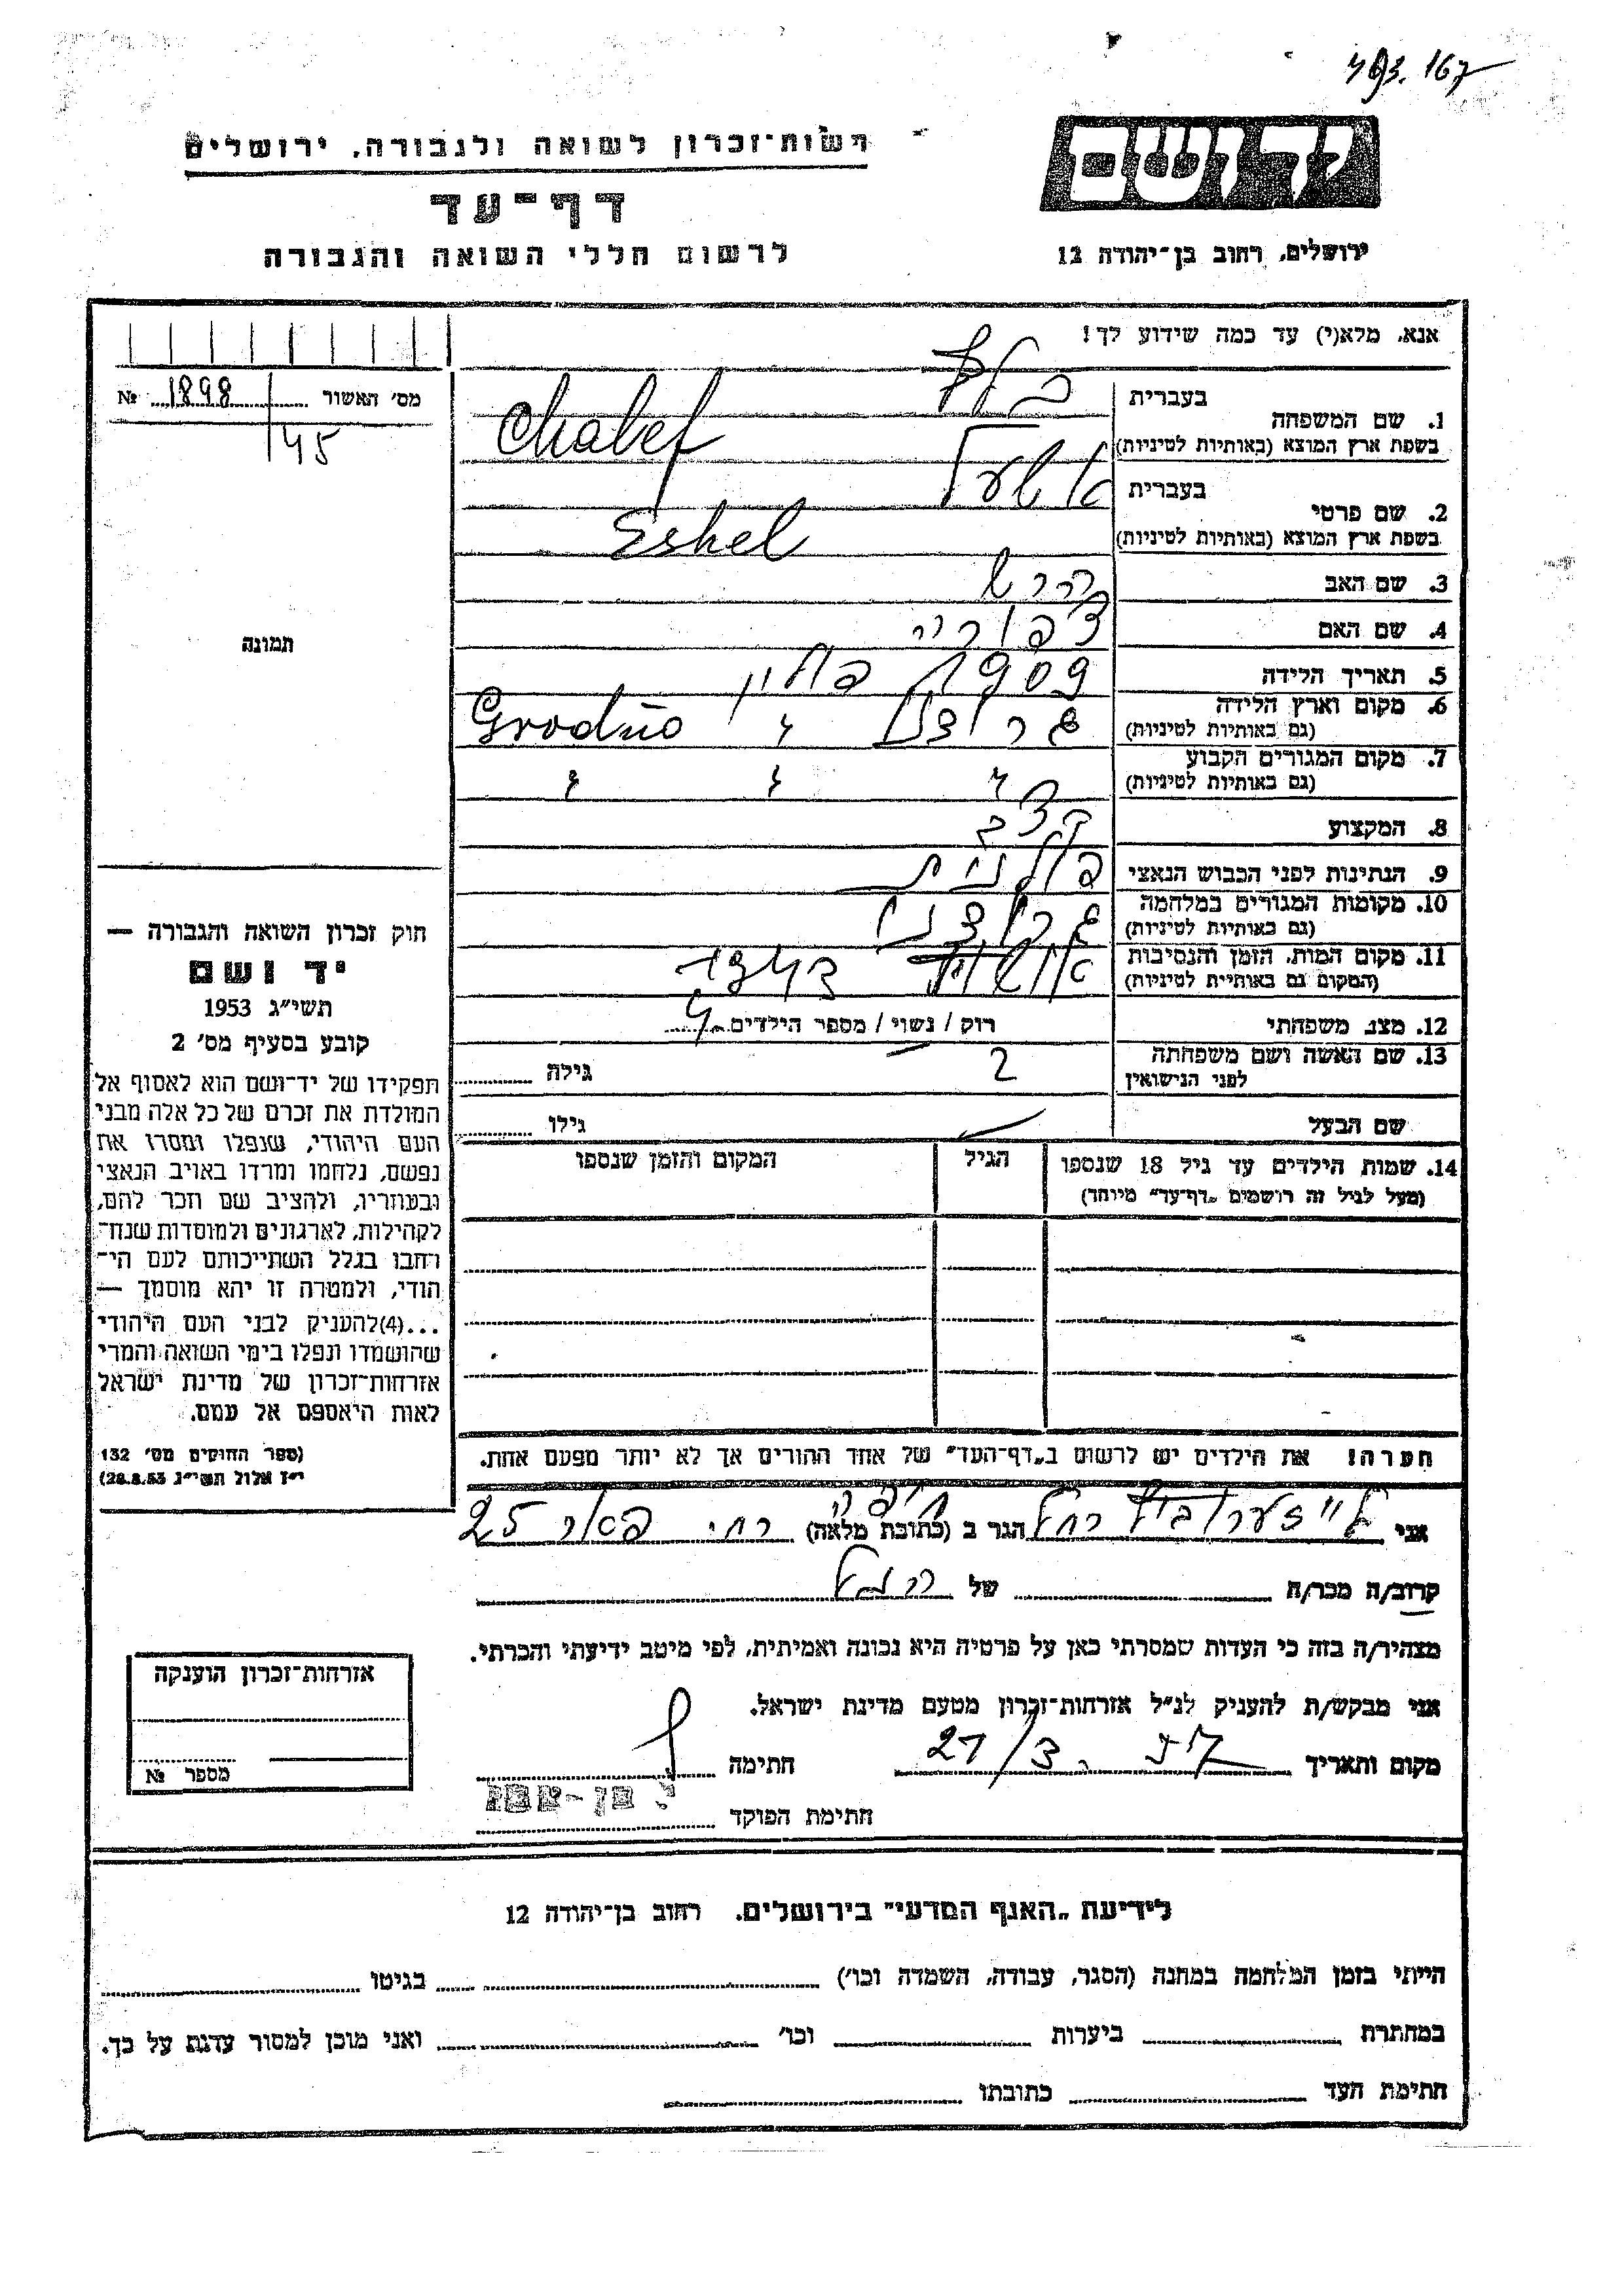 493.167
רשות־זכרון לשואה ולגבורה, ירושלים
דף־עד
לרשום חללי השואה והגבורה
ידושם
ירושלים, רחוב בן־יהודה 12
אנא, מלא(י) עד כמה שידוע לך!
מס׳ האשור 1898 №
45
תמונה
1. שם המשפחה
בעברית
בשפת ארץ המוצא (באותיות לטיניות) Chabef
2. שם פרטי
בעברית
בשפת ארץ המוצא (באותיות לטיניות) Eshel
3. שם האב הרש
4. שם האם צפורה
5. תאריך הלידה 1909
6. מקום וארץ הלידה
(גם באותיות לטיניות) גרודנו Grodno
7. מקום המגורים הקבוע
(גם באותיות לטיניות) " " "
8. המקצוע קצב
9. הנתינות לפני הכבוש הנאצי פולנית
10. מקומות המגורים במלחמה
(גם באותיות לטיניות) גרודנו
11. מקום המות, הזמן והנסיבות
(המקום גם באותיית לטיניות) אושויץ 1943
12. מצב משפחתי רוק / נשוי / מספר הילדים 4
13. שם האשה ושם משפחתה
לפני הנישואין
גילה
שם הבעל
גילו
14. שמות הילדים עד גיל 18 שנספו
(מעל לגיל זה רושמים „דף־עד״ מיוחד)
הגיל
המקום והזמן שנספו
הערה! את הילדים יש לרשום ב„דף־העד״ של אחד ההורים אך לא יותר מפעם אחת.
חוק זכרון השואה והגבורה —
יד ושם
תשי״ג 1953
קובע בסעיף מס׳ 2
תפקידו של יד־ושם הוא לאסוף אל
המולדת את זכרם של כל אלה מבני
העם היהודי, שנפלו ומסרו את
נפשם, נלחמו ומרדו באויב הנאצי
ובעוזריו, ולהציב שם וזכר להם,
לקהילות, לארגונים ולמוסדות שנח־
רחבו בגלל השתייכותם לעם הי־
הודי, ולמטרה זו יהא מוסמך —
...(4)להעניק לבני העם היהודי
שהושמדו ונפלו בימי השואה והמרי
אזרחות־זכרון של מדינת ישראל
לאות היאספם אל עמם.
(ספר החוקים מס׳ 132
י״ז אלול תשי״ג 28.8.53)
אני רחל הגר ב (כתובת מלאה) חיפה רח׳ 25
קרוב/ה מכר/ה של
מצהיר/ה בזה כי העדות שמסרתי כאן על פרטיה היא נכונה ואמיתית, לפי מיטב ידיעתי והכרתי.
אני מבקש/ת להעניק לנ״ל אזרחות־זכרון מטעם מדינת ישראל.
מקום ותאריך 21/3 חתימה
חתימת הפוקד
אזרחות־זכרון הוענקה
מספר №
לידיעת „האגף המדעי״ בירושלים. רחוב בן־יהודה 12
הייתי בזמן המלחמה במחנה (הסגר, עבודה, השמדה וכו׳) בגיטו
במחתרת ביערות וכו׳ ואני מוכן למסור עדות על כך.
חתימת העד כתובתו